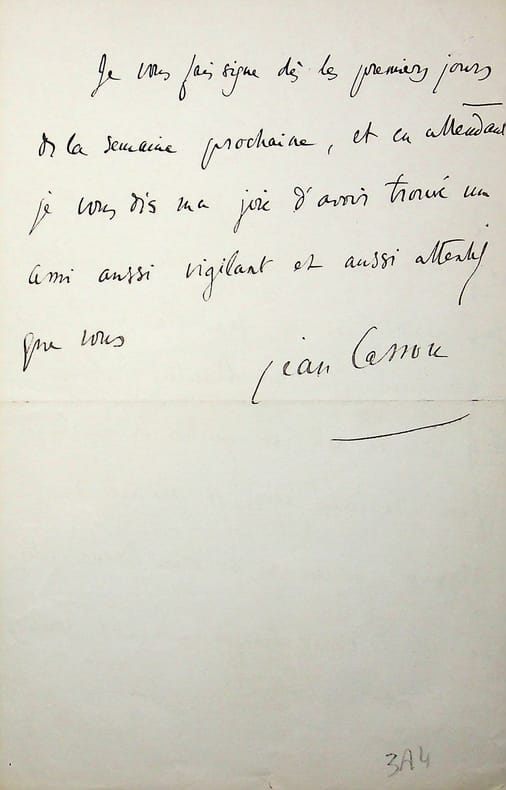 Je vous fais signe dès les premiers jours
de la semaine prochaine, et en attendant
je vous dis ma joie d'avoir trouvé un
ami aussi vigilant et aussi attentif
que vous
Jean Cassou
3A4